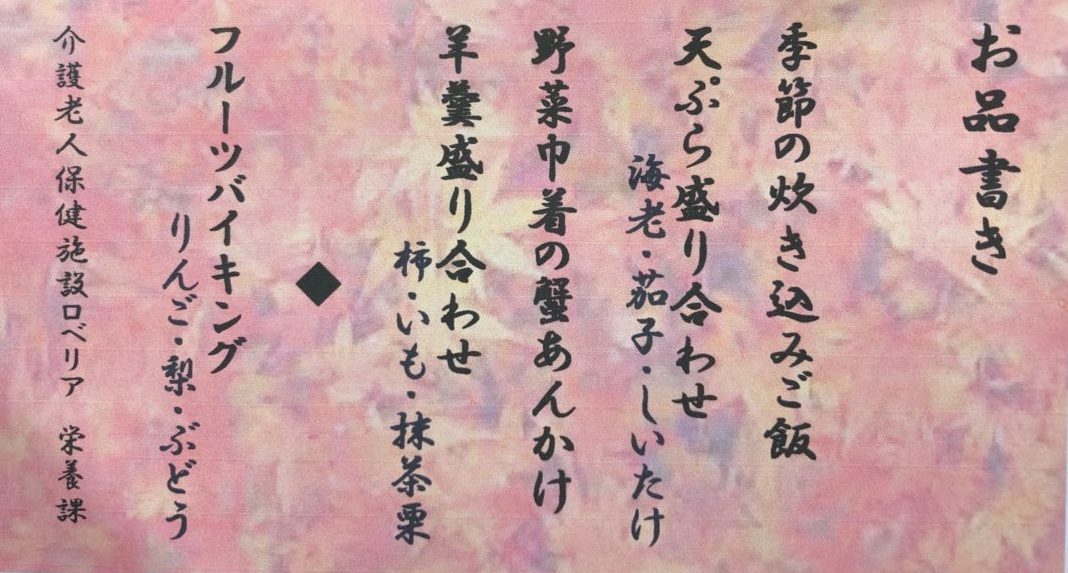 お品書き
季節の炊き込みご飯
天ぷら盛り合わせ
海老・茄子・しいたけ
野菜巾着の蟹あんかけ
羊羹盛り合わせ
柿・いも・抹茶栗
◆
フルーツバイキング
りんご・梨・ぶどう
介護老人保健施設ロベリア 栄養課